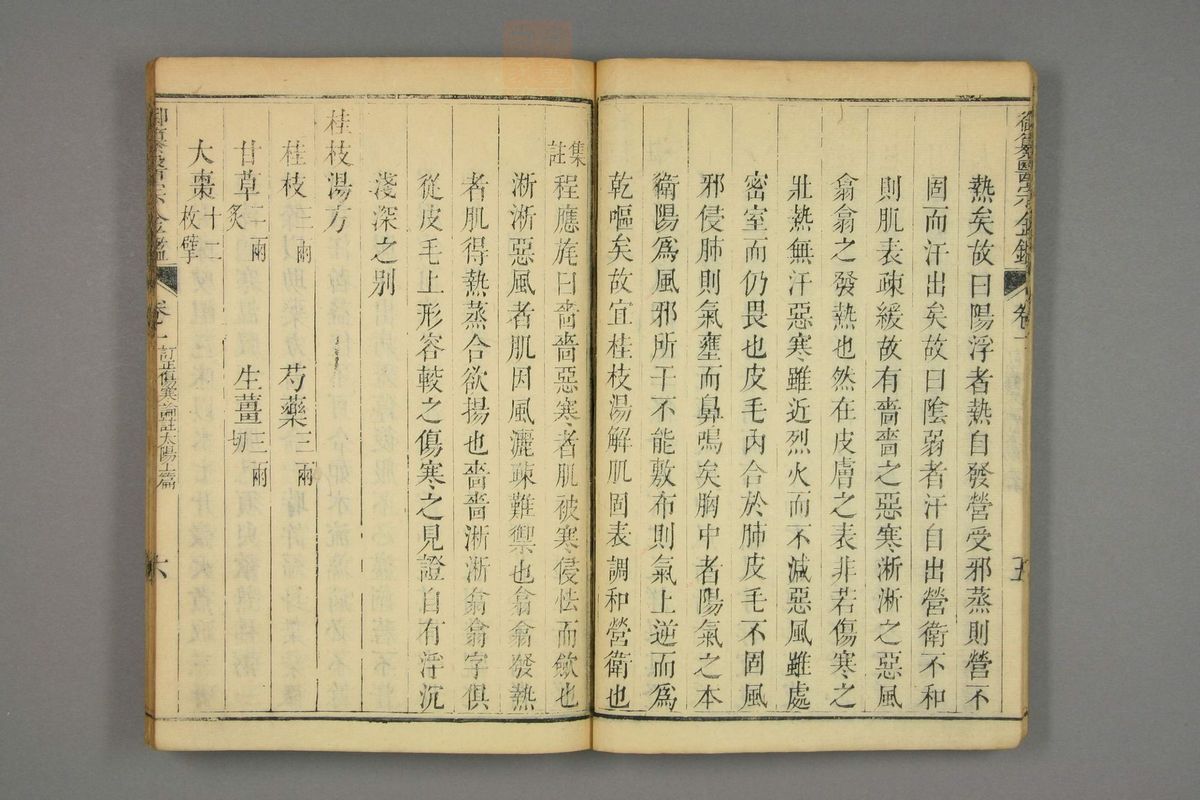 御纂醫宗金鑑
卷一
五
熱矣故曰陽浮者熱自發營受邪蒸則營不
固而汗出矣故曰陰弱者汗自出營衛不和
則肌表疎緩故有嗇嗇之惡寒淅淅之惡風
翕翕之發熱也然在皮膚之表非若傷寒之
壯熱無汗惡寒雖近烈火而不減惡風雖處
密室而仍畏也皮毛內合於肺皮毛不固風
邪侵肺則氣壅而鼻鳴矣胸中者陽氣之本
衛陽爲風邪所干不能敷布則氣上逆而爲
乾嘔矣故宜桂枝湯解肌固表調和營衛也
集註
程應旄曰嗇嗇惡寒者肌被寒侵怯而歛也
淅淅惡風者肌因風灑疎難禦也翕翕發熱
者肌得熱蒸合欲揚也嗇嗇淅淅翕翕字俱
從皮毛上形容較之傷寒之見證自有浮沉
淺深之別
桂枝湯方
桂枝三兩 芍藥三兩
甘草二兩炙 生薑三兩切
大棗十二枚擘
御纂醫宗金鑑
卷一
訂正傷寒論註太陽上篇
六